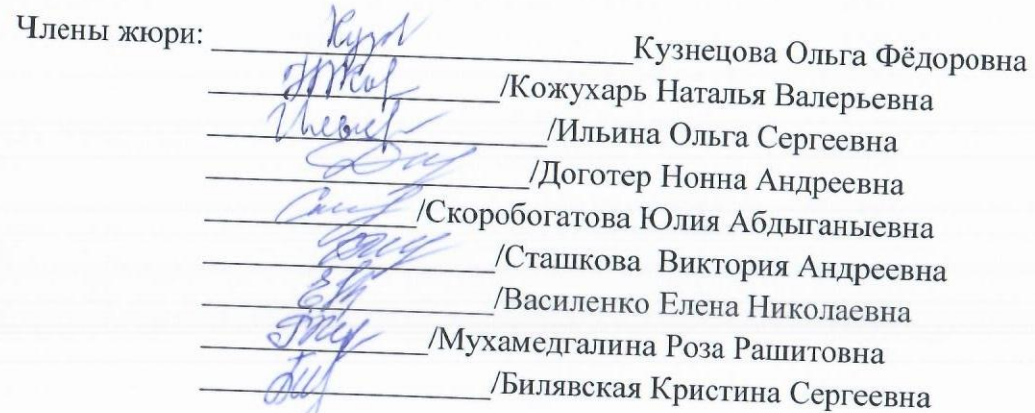 Члены жюри: ____________ Кузнецова Ольга Фёдоровна
____________/Кожухарь Наталья Валерьевна
____________/Ильина Ольга Сергеевна
____________/Доготер Нонна Андреевна
____________/Скоробогатова Юлия Абдыганыевна
____________/Сташкова Виктория Андреевна
____________/Василенко Елена Николаевна
____________/Мухамедгалина Роза Рашитовна
____________/Билявская Кристина Сергеевна